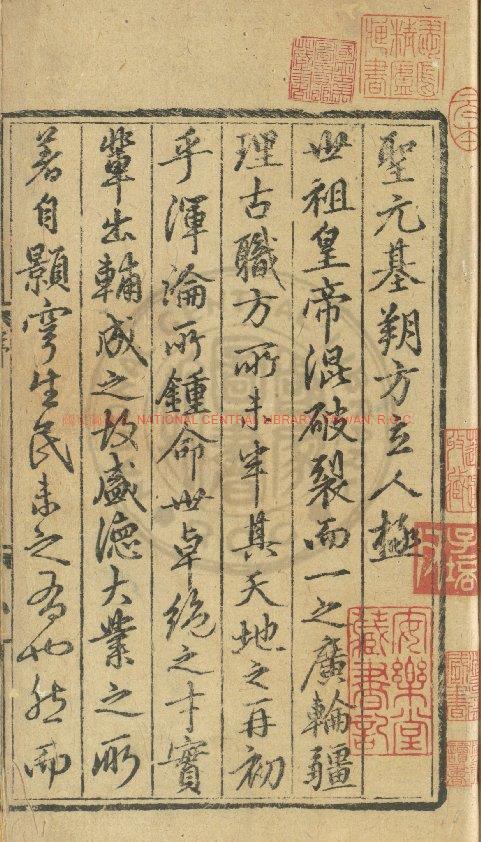 聖元基朔方立人極
世祖皇帝混破裂而一之廣輪疆
理古職方所未半其天地之再初
乎渾淪所鍾命世卓絶之才實
輩出輔成之故盛德大業之所
著自顥穹生民未之有也然而
安樂堂
藏書記
NATIONAL CENTRAL LIBRARY, TAIWAN R.O.C.